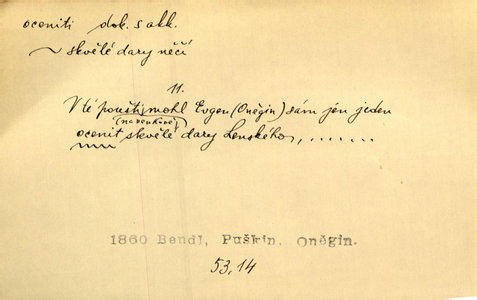 oceniti dok. s akk.
~ skvělé dary něčí
11.
V té poušti mohl Evgen (Oněgin) sám jen jeden
(na venkově)
ocenit skvělé dary Lenského, .......
1860 Bendl, Puškin. Oněgin.
53,14